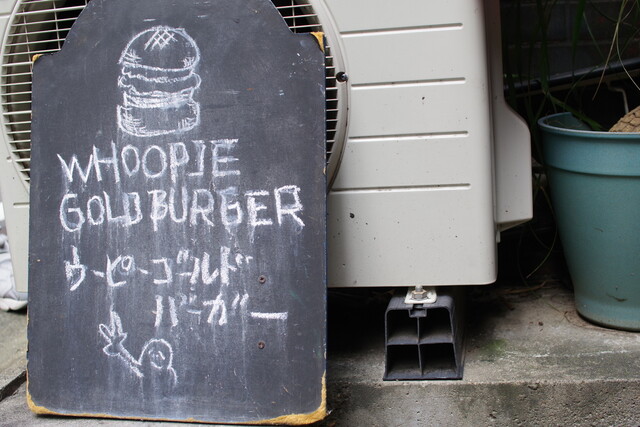 WHOOPIE
GOLDBURGER
ウーピーゴールド
バーガー